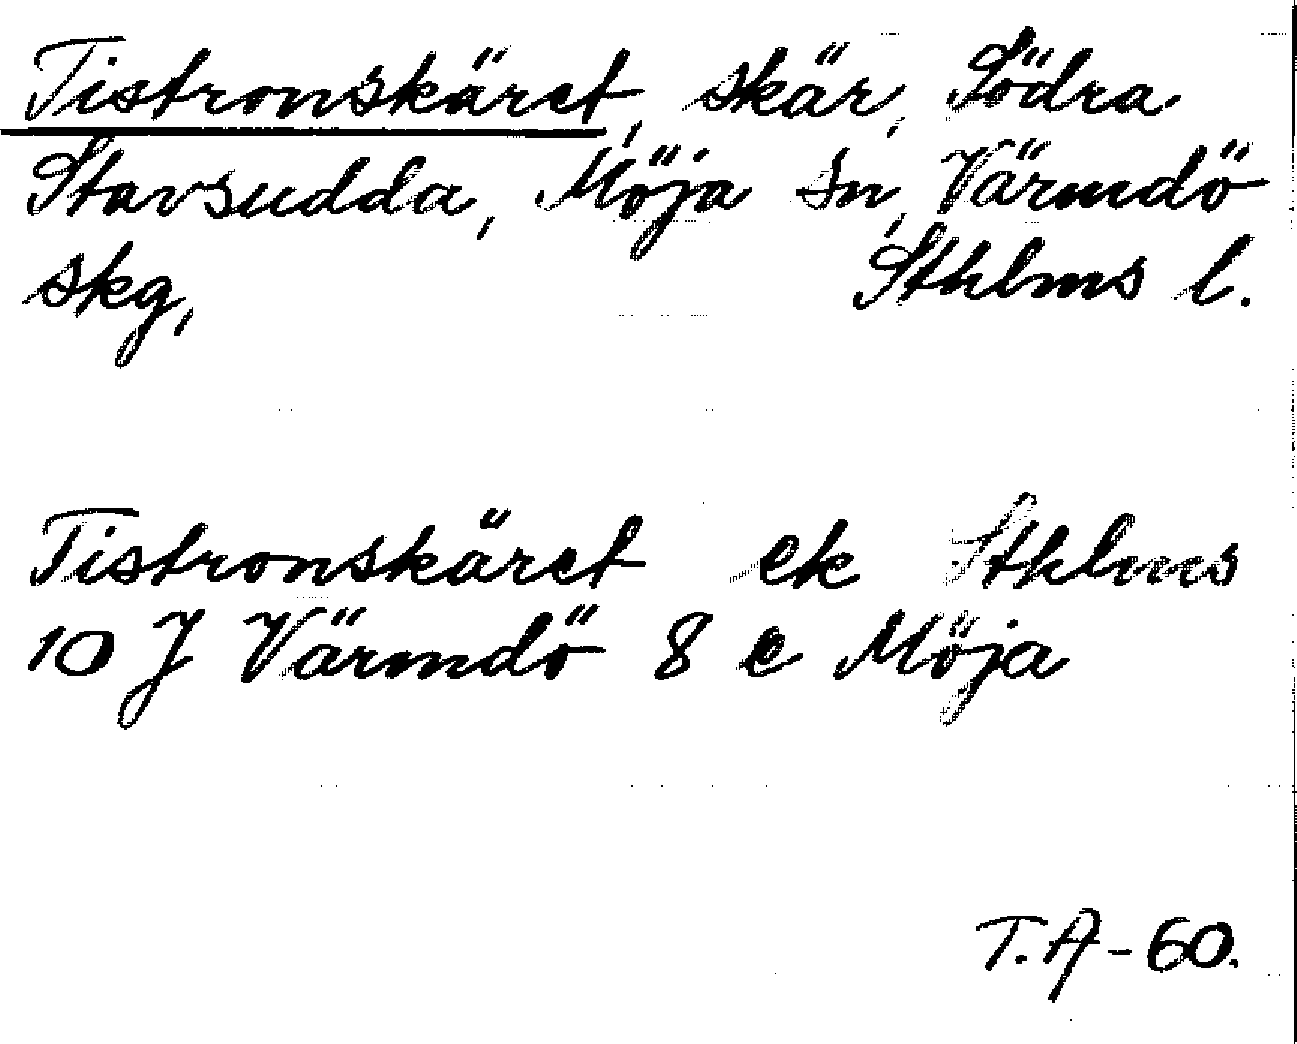 Tistronskäret, skär, Södra
Stavsudda, Möja sn, Värmdö
skg, Sthlms l.
Tistronskäret ek Sthlms
10 J Värmdö 8 e Möja
T.A-60.